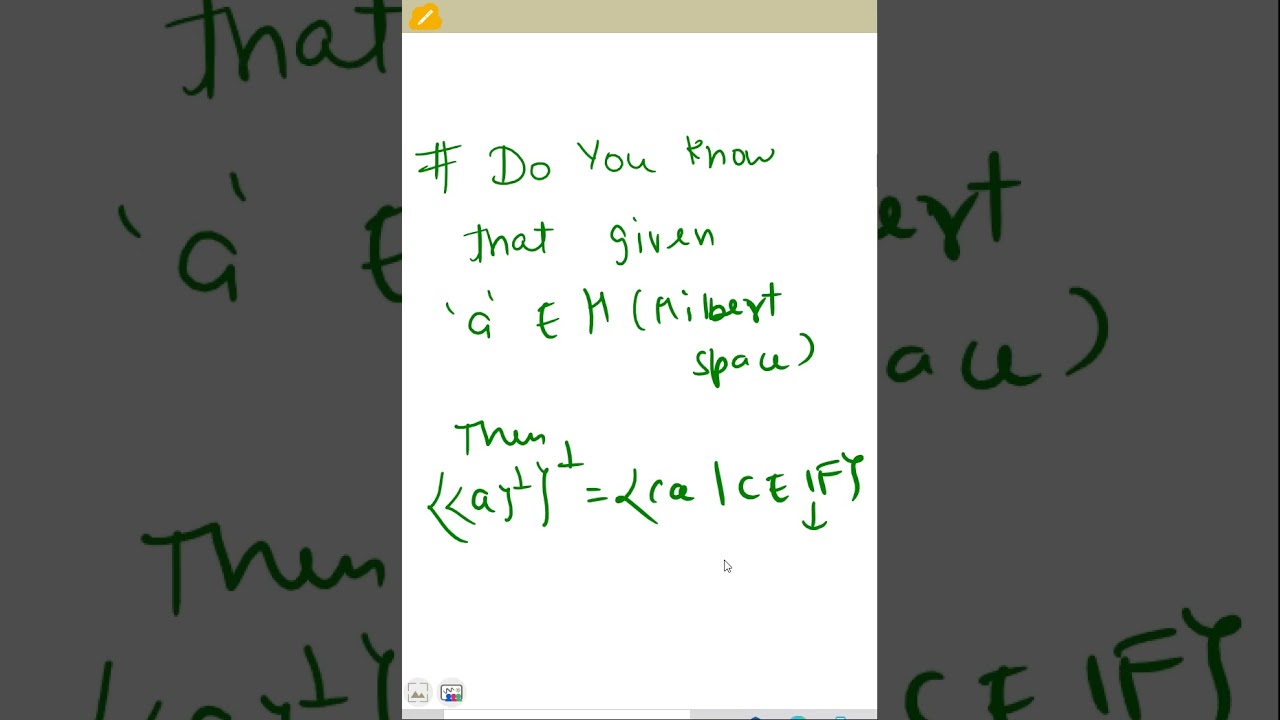 # Do You know
that given
'a' ∈ H (Hilbert
space)
Then
{{a}⊥}⊥ = {ca | c ∈ IF}
↓